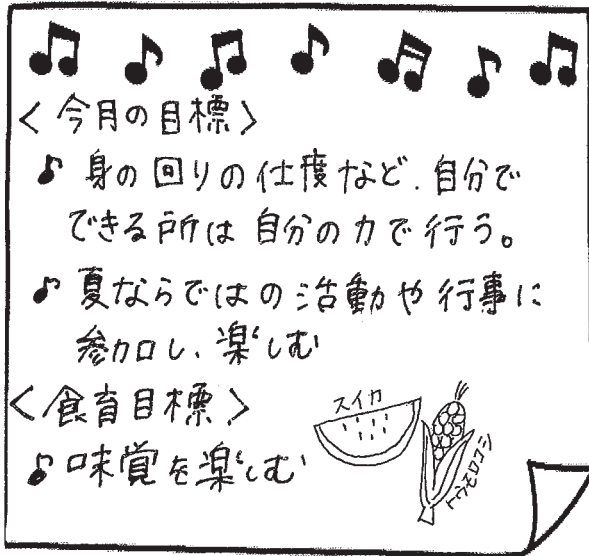 <今月の目標>
♪ 身の回りの仕度など、自分で
できる所は自分の力で行う。
♪ 夏ならではの活動や行事に
参加し、楽しむ
<食育目標>
スイカ
♪ 味覚を楽しむ
トウモロコシ